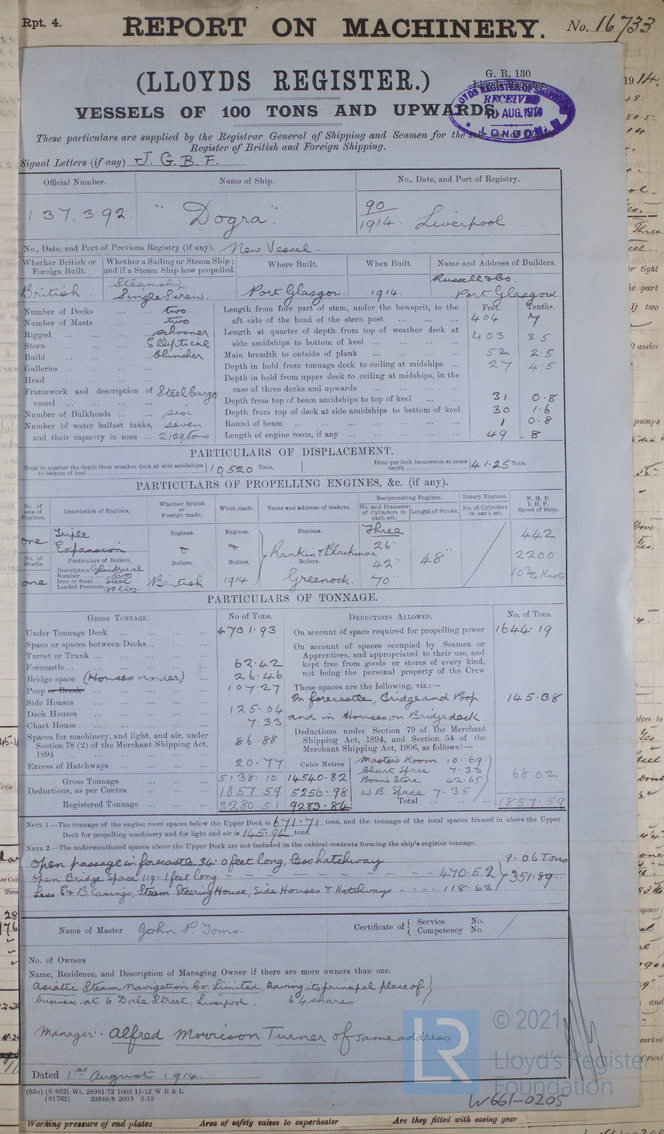 Rpt. 4.
REPORT ON MACHINERY.
No. 16733
(LLOYDS REGISTER.)
G. R, 130
VESSELS OF 100 TONS AND UPWARDS
LLOYDS REGISTER OF SHIPPING
RECEIVED
10 AUG. 1914
LONDON
These particulars are supplied by the Registrar General of Shipping and Seamen for the
Register of British and Foreign Shipping.
Signal Letters (if any) J. G. B. F.
Official Number. Name of Ship. No., Date, and Port of Registry.
137,392 "Dogra" 90/1914. Liverpool
No., Date, and Port of Previous Registry (if any). New Vessel.
Whether British or Foreign Built. Whether a Sailing or Steam Ship; and if a Steam Ship how propelled. Where Built. When Built. Name and Address of Builders.
British Steamship Single Screw. Port Glasgow. 1914. Russell & Co. Port Glasgow
Number of Decks two
Number of Masts two
Rigged schooner
Stern Elliptical
Build Clincher
Galleries
Head
Framework and description of vessel Steel Cargo
Number of Bulkheads six
Number of water ballast tanks, seven
and their capacity in tons 2129 tons
Feet. Tenths
Length from fore part of stem, under the bowsprit, to the aft side of the head of the stern post 404 7
Length at quarter of depth from top of weather deck at side amidships to bottom of keel 403 3.5
Main breadth to outside of plank 52 2.5
Depth in hold from tonnage deck to ceiling at midships 27 4.5
Depth in hold from upper deck to ceiling at midships, in the case of three decks and upwards
Depth from top of beam amidships to top of keel 31 0.8
Depth from top of deck at side amidships to bottom of keel 30 1.6
Round of beam 1 0.8
Length of engine room, if any 49 .8
PARTICULARS OF DISPLACEMENT.
Total to quarter the depth from weather deck at side amidships to bottom of keel 10520 Tons.
Ditto per inch immersion at same depth 41.25 Tons.
PARTICULARS OF PROPELLING ENGINES, &c. (if any).
No. of sets of Engines. Description of Engines. Whether British or Foreign made. When made. Name and address of makers. Reciprocating Engines. Rotary Engines. N. H. P. I. H. P. Speed of Ship.
No. and Diameter of Cylinders in each set. Length of Stroke. No. of Cylinders in each set.
one Triple Expansion Engines. Engines. Engines. Three 26" 42" 70" 48" 442 2200
No. of Shafts. Particulars of Boilers. Boilers. Boilers. Boilers. Rankin & Blackmore Greenock.
one Description Cylindrical
Number two
Iron or Steel Steel
Loaded Pressure 180 lbs
British 1914 10¾ Knots
PARTICULARS OF TONNAGE.
GROSS TONNAGE. No of Tons. DEDUCTIONS ALLOWED. No. of Tons.
Under Tonnage Deck 4701.93
Space or spaces between Decks
Turret or Trunk
Forecastle 62.42
Bridge space (Houses under) 26.46
Poop or Break 107.27
Side Houses
Deck Houses 125.04
Chart House 7.33
Spaces for machinery, and light, and air, under Section 78 (2) of the Merchant Shipping Act, 1894 86.88
Excess of Hatchways 20.77
Cubic Metres
Gross Tonnage 5138.10 14540.82
Deductions, as per Contra 1857.59 5256.98
Registered Tonnage 3280.51 9283.84
On account of space required for propelling power 1644.19
On account of spaces occupied by Seamen or Apprentices, and appropriated to their use, and kept free from goods or stores of every kind, not being the personal property of the Crew
These spaces are the following, viz.:—
In forecastle, Bridge and Poop and in Houses on Bridge deck 145.38
Deductions under Section 79 of the Merchant Shipping Act, 1894, and Section 54 of the Merchant Shipping Act, 1906, as follows:—
Master's Room 10.69
Chart Space 7.33
Bosns Store 42.65
W.B. Space 7.35
68.02
Total 1857.59
NOTE 1.—The tonnage of the engine room spaces below the Upper Deck is 671.71 tons, and the tonnage of the total spaces framed in above the Upper
Deck for propelling machinery and for light and air is 145.94 tons
NOTE 2.—The undermentioned spaces above the Upper Deck are not included in the cubical contents forming the ship's register tonnage.
Open passage in forecastle 34.0 feet long, less hatchway 9.06 Tons
Open Bridge Space 119.1 feet long 470.52
Less E & B Casings, Steam Steering House, Side Houses & Hatchways 118.63 351.89
Name of Master John P. Toms.
Certificate of { Service No. Competency No.
No. of Owners
Name, Residence, and Description of Managing Owner if there are more owners than one.
Asiatic Steam Navigation Co. Limited, having its principal place of
business at 6 Dale Street, Liverpool. 64 shares
Manager: Alfred Morrison Turner of same address
Dated 1st August 1914.
(83o) (6 662) Wt. 28981/72 1000 11-12 W B & L
(81762) 20349/8 2000 3-13
© 2021
LR
Lloyd's Register
Foundation
W661-0205
Working pressure of end plates Area of safety valves to superheater Are they fitted with easing gear